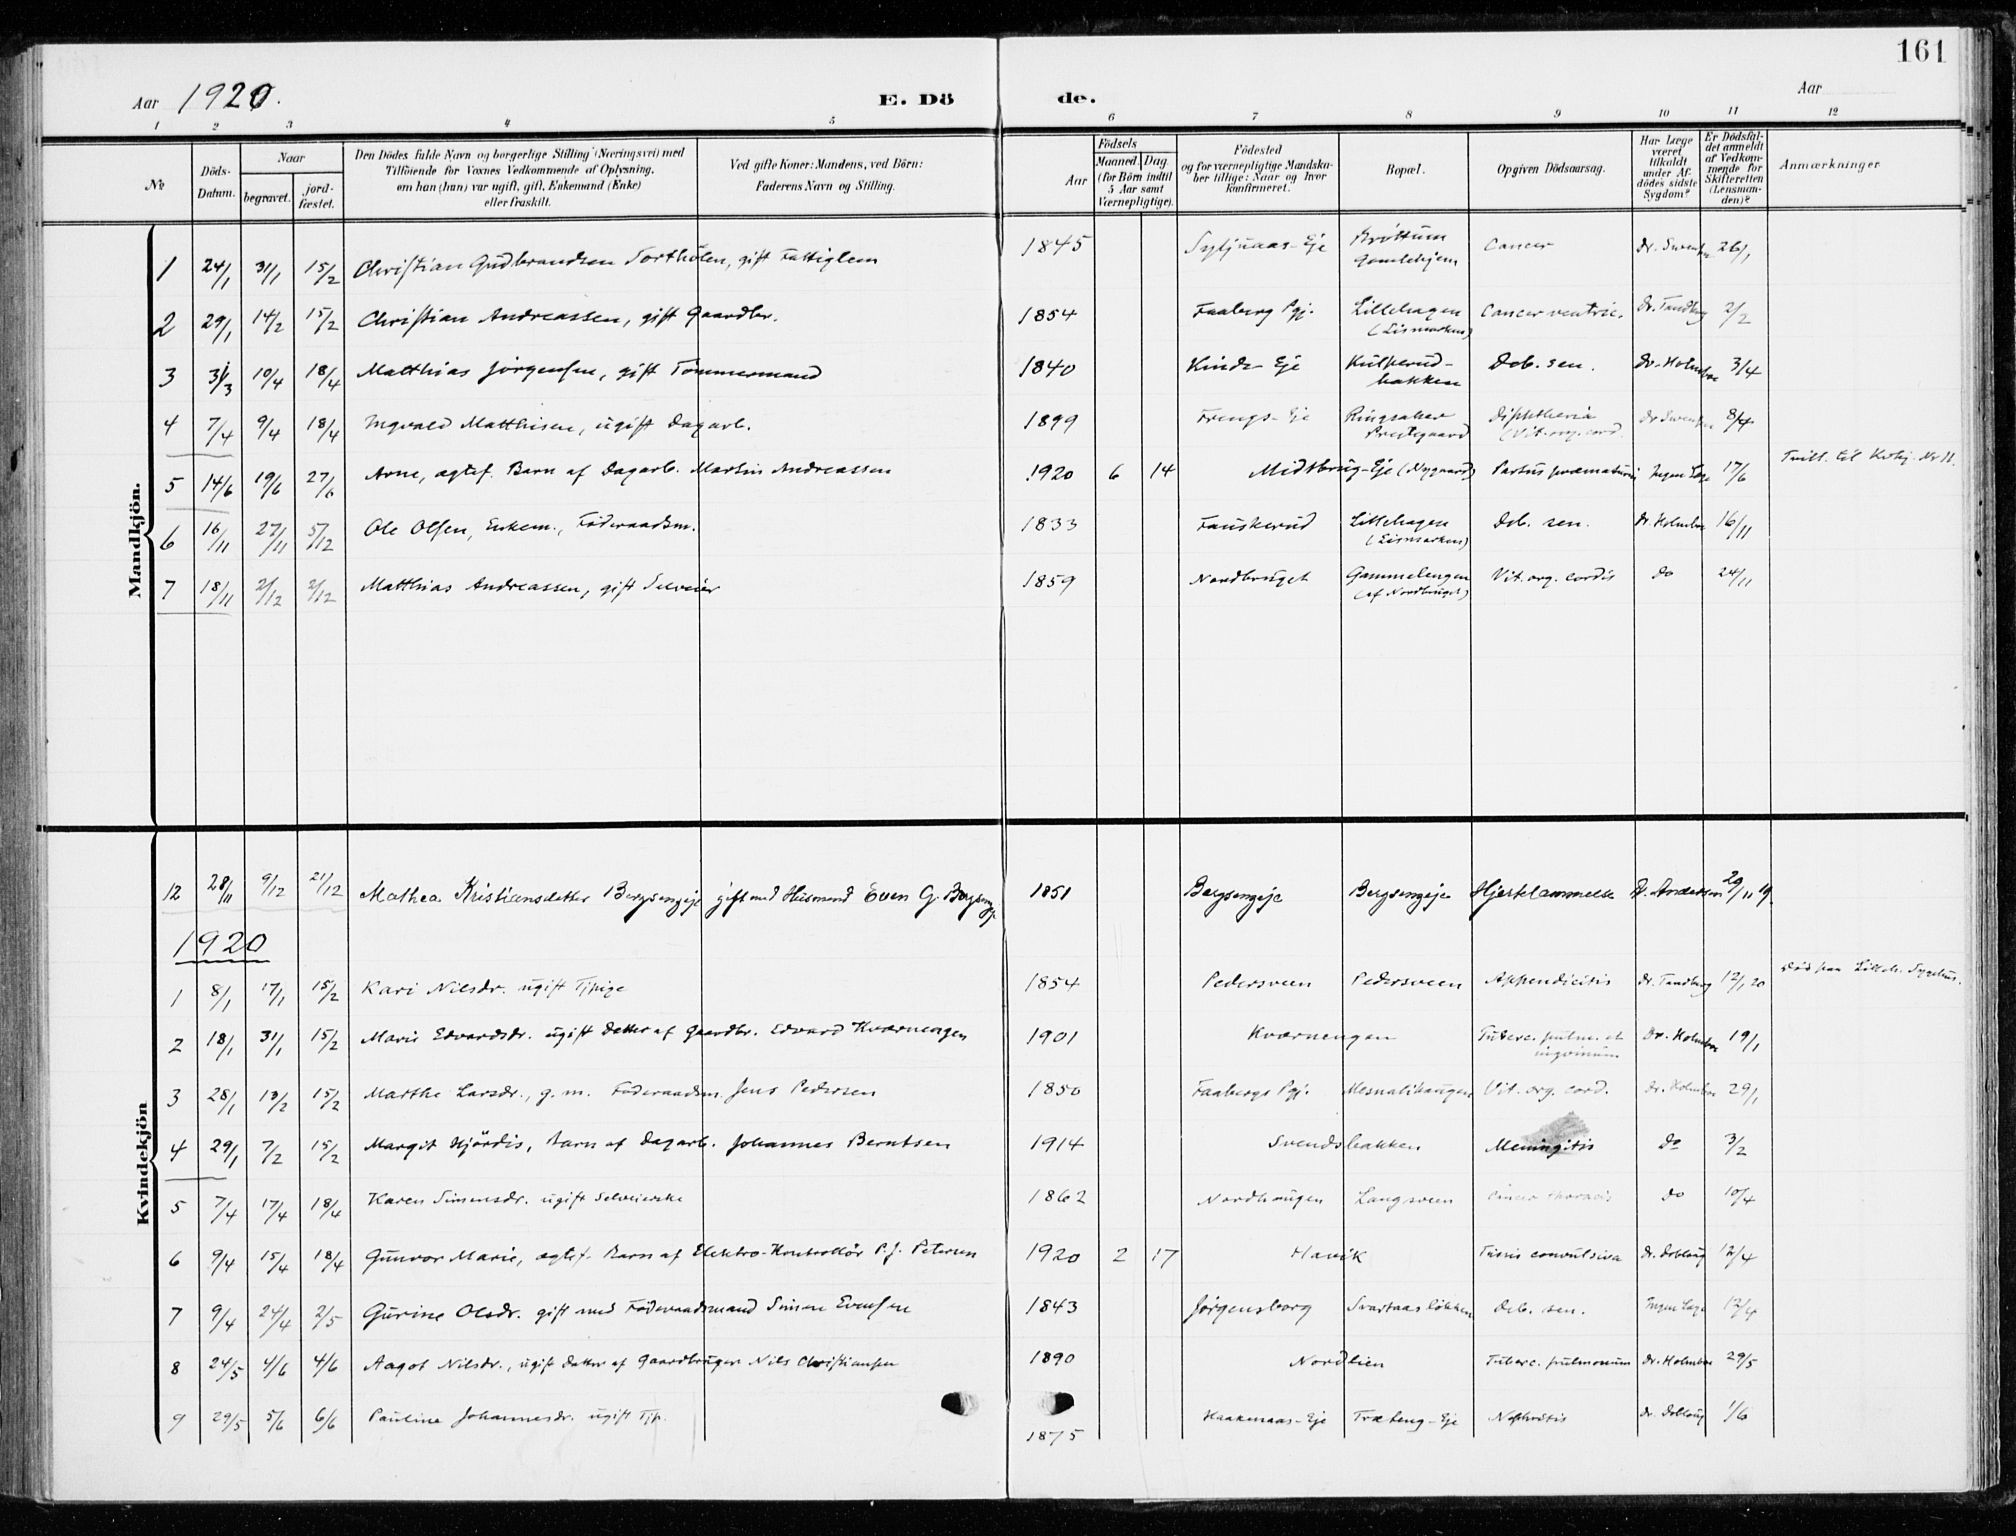 161
Aar 1920. E. Dö de. Aar
1 2 3 4 5 6 7 8 9 10 11 12
№ Döds-Datum. Naar begravet. jord-fæstet. Den Dödes fulde Navn og borgerlige Stilling (Næringsvei) med Tilföiende for Voxnes Vedkommende af Oplysning, om han (hun) var ugift, gift, Enkemand (Enke) eller fraskilt. Ved gifte Koner: Mandens, ved Börn: Faderens Navn og Stilling. Aar Födsels Maaned. Dag. (for Börn indtil 5 Aar samt Værnepligtige). Födested og for værnepligtige Mandskaber tillige: Naar og hvor konfirmeret. Bopæl. Opgiven Dödsaarsag. Har Læge været tilkaldt under Afdödes sidste Sygdom? Er Dödsfaldet anmeldt af Vedkommende for Skifteretten (Lensmanden)? Anmærkninger
Mandkjön.
1 24/1 31/1 15/2 Christian Gudbrandsen Sortholen, gift Fattiglem 1845 -Eje Brøttum Gamlehjem Cancer Dr. 26/1
2 29/1 14/2 15/2 Christian Andreassen, gift Gaardbr. 1854 Faaberg Pgj. Lillehagen (Lismarken) Cancer ventric. Dr. Tandberg 2/2
3 31/3 10/4 18/4 Matthias Jørgensen, gift Tømmermand 1840 Kinds-Eje Kulperud-bakken Deb. sen. Dr. Holmboe 3/4
4 7/4 9/4 18/4 Ingvald Matthisen, ugift Dagarb. 1899 Frengs-Eje Ringsaker Prestegaard Diphtheria (Vit. org. cord. Dr 8/4
5 14/6 19/6 27/6 Arne, agtef. Barn af Dagarb. Martin Andreassen 1920 6 14 Midtbrug-Eje (Nygaard) Partus præmaturus Ingen Læge 17/6 Tvill. til Kvkj. Nr 11.
6 16/11 27/11 5/12 Ole Olsen, Enkem., Føderaadsm. 1833 Fauskerud Lillehagen (Lismarken) Deb. sen. Dr. Holmboe 16/11
7 18/11 2/12 2/12 Matthias Andreassen, gift Selveier 1859 Nordbruget Gammelengen (af Nordbruget) Vit. org. cordis Do 24/11
Kvindekjön
12 28/11 9/12 21/12 Mathea Kristiansdatter Bergsengeje gift med Husmand Even G. Bergseng 1851 Bergsengeje Bergsengeje Hjertelammelse D. Andersen 29/11 19.
1920
1 8/1 17/1 15/2 Kari Nilsdr. ugift Tjpige 1854 Pedersveen Pedersveen Appendicitis Dr. Tandberg 12/1 20 Død paa Lilleh. Sygehus.
2 18/1 31/1 15/2 Marie Edvardsdr. ugift Datter af Gaardbr. Edvard Kværnengen 1901 Kværnengen Tuberc. pulm. et Dr. Holmboe 19/1
3 28/1 13/2 15/2 Marthe Larsdr., g. m. Føderaadsm. Jens Pedersen 1850 Faabergs Pgj. Mesnalihaugen Vit. org. cord. Dr. Holmboe 29/1
4 29/1 7/2 15/2 Margit Hjørdis, Barn af Dagarb. Johannes Berntsen 1914 Svendsbakken Meningitis Do 3/2
5 7/4 17/4 18/4 Karen Simensdr. ugift Selveierske 1862 Nordhaugen Langsveen Cancer thoracis Do 10/4
6 9/4 15/4 18/4 Gunvor Marie, agtef. Barn af Elektro-Kontrollør P. J. Petersen 1920 2 17 Mavik Tussis convulsiva Dr. Dobloug 12/4
7 9/4 24/4 2/5 Gurine Olsdr. gift med Føderaadsmand Simen Evensen 1843 Jørgensborg Svartaasløkken Deb. sen. Ingen Læge 12/4
8 24/5 4/6 4/6 Aagot Nilsdr., ugift Datter af Gaardbruger Nils Christiansen 1890 Nordlien Tuberc. pulmonum Dr. Holmboe 29/5
9 29/5 5/6 6/6 Pauline Johannesdr. ugift Tjp. 1875 Haakenaas-Eje Træteng-Eje Nephritis Dr. Dobloug 1/6